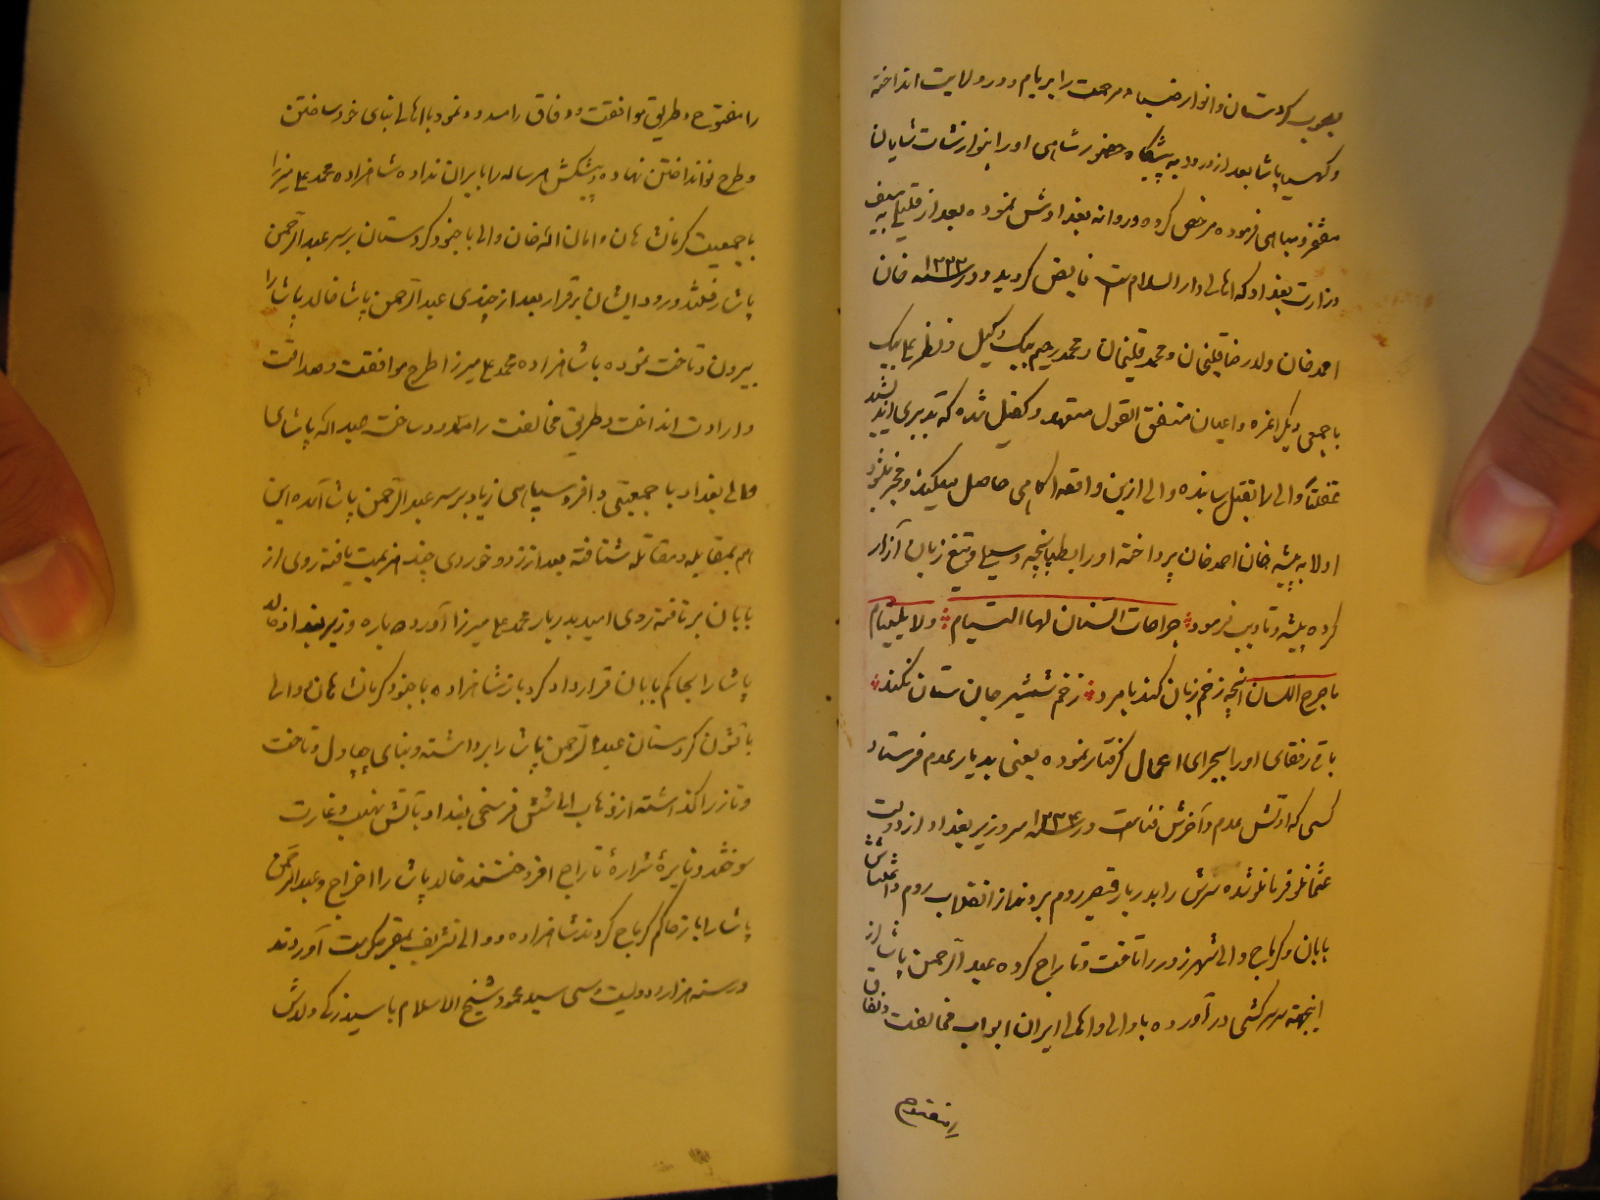 بصوب کردستان و انوار ضیاء مرحمت را بر بام و در ولایت انداخته
و کهیا پاشا بعد از ورود به پیشگاه حضور شاهی او را بنوازشات شایان
مفتخر و مباهی فرموده مرخص کرده و روانه بغدادش نموده بعد از قلیلی به
وزارت بغداد که اهالی دار السلام ست فایض گردید و در سنه ۱۲۲۳ خان
احمد خان ولد رضا قلیخان و محمد قلیخان و محمد رحیم بیک وکیل و نظر علی بیک
با جمعی دیگر اعزه و اعیان متفق القول متعهد و کفیل شده که تدبیری اندیشد
غفلتاً والی را بقتل رسانیده والی ازین واقعه آکاهی حاصل میکند
اولا به پیشه خان احمد خان پرداخته او را بطپانچه و سیلی و تیغ زبان آزار
کرده و تادیب فرمود جراحات السنان لها التیام و لا یلتام
ما جرح اللسان آنچه زخم زبان کند با مرد زخم شمشیر جان ستان نکند
باقی رفقای او را بجزای اعمال گرفتار نموده یعنی بدیار عدم فرستاد
کسی که اولش عدم و آخرش فناست در سنه ۱۲۲۴ سر وزیر بغداد از دولت
شده سرش را بدربار قیصر روم بردند از انقلاب روم
بابان و والی شهرزور را تاخت و تاراج کرده عبد الرحمن پاشا از
اینجهته سر سرکشی در آورده با والی و اهالی ایران ابواب مخالفت و نفاق
را مفتوح
را مفتوح و طریق موافقت و وفاق را مسدود نمود با اهالی بنای خود ساختن
و طرح نو انداختن نهاده و پیشکش هر ساله را بایران نداده شاهزاده محمد علی میرزا
با جمعیت کرمانشاهان و امان الله خان والی با جنود کردستان بر سر عبد الرحمن
پاشا رفتند ورود ایشان برقرار بعد از چندی عبد الرحمن پاشا خالد پاشا را
بیرون و تاخت نموده با شاهزاده محمد علی میرزا طرح موافقت و صداقت
و ارادت انداخت و طریق مخالفت را مسدود ساخت عبد الله پاشای
والی بغداد با جمعیتی وافر و سپاهی زیاد بر سر عبد الرحمن پاشا آمده این
هم بمقابله و مقاتله شتافته بعد از زد و خوردی چند هزیمت یافته روی از
بابان بر تافته روی امید بدربار محمد علی میرزا آورده وزیر بغداد خالد
پاشا را بحاکم بابان قرارداد کرد باز شاهزاده با جنود کرمانشاهان و والی
با قشون کردستان عبد الرحمن پاشا را برداشته و بنای چپاول و تاخت
و تاز را گذاشته از ذهاب الی شش فرسخی بغداد بآتش نهب و غارت
سوختند و نایره شراره تاراج افروختند خالد پاشا را اخراج و عبد الرحمن
پاشا را باز حاکم کردند شاهزاده و والی تشریف بمقر حکومت آوردند
در سنه هزار و دویست و سی سید محمود شیخ الاسلام با سید زکی ولدش